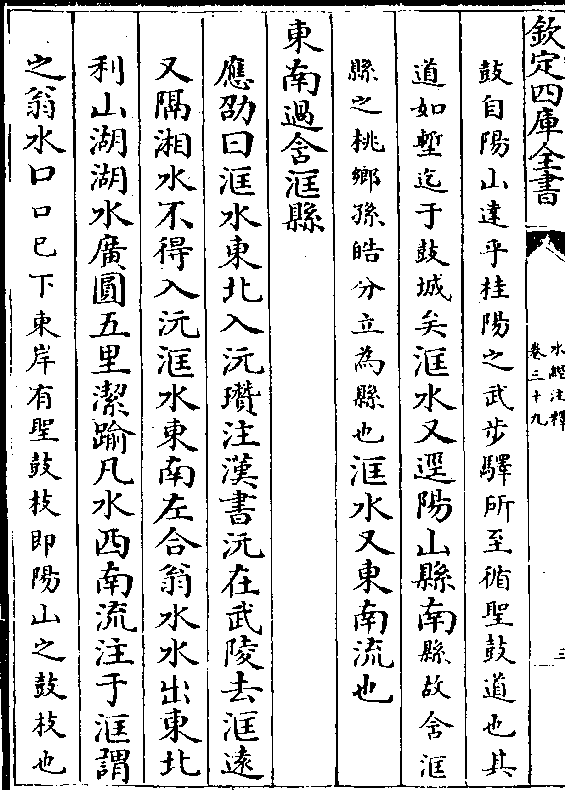 欽定四庫全書
水經注釋
卷三十九
三
鼓自陽山達乎桂陽之武步驛所至循聖鼓道也其
道如塹迄于鼓城矣洭水又逕陽山縣南縣故含洭
縣之桃鄉孫皓分立為縣也洭水又東南流也
東南過含洭縣
應劭曰洭水東北入沅瓚注漢書沅在武陵去洭遠
又隔湘水不得入沅洭水東南左合翁水水出東北
利山湖湖水廣圓五里潔踰凡水西南流注于洭謂
之翁水口口已下東岸有聖鼓枝即陽山之鼓枝也